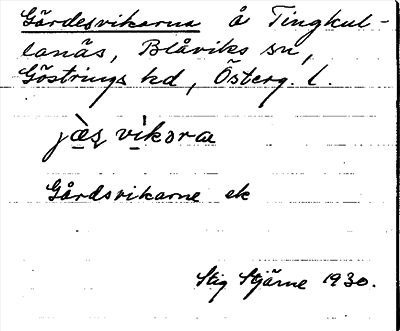 Gärdesvikarna å Tingkul-
lanäs, Blåviks sn,
Göstrings hd, Österg. l.
jæ̀s vìkəra
Gårdsvikarne ek
Stig Stjärne 1930.